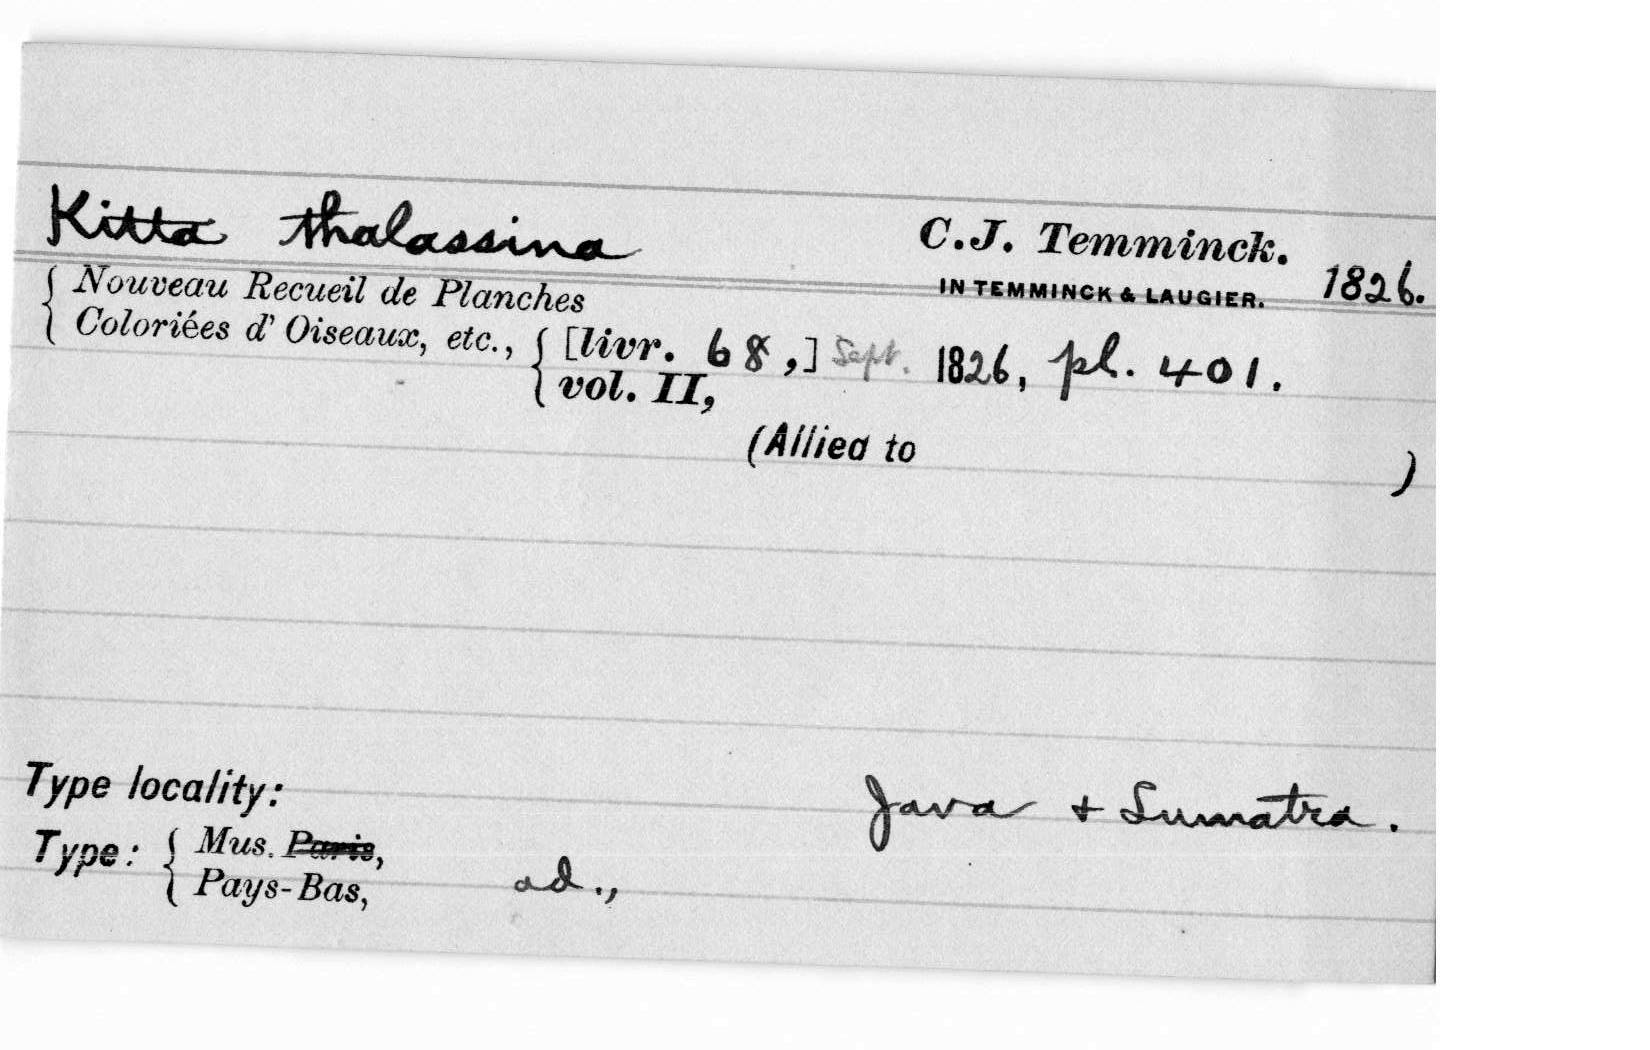 Kitta thalassina C.J. Temminck.
IN TEMMINCK & LAUGIER. 1826.
{ Nouveau Recueil de Planches
Coloriées d' Oiseaux, etc., { [livr. 68,] Sept. 1826, pl. 401.
vol. II,
(Allied to )
Type locality: Java + Sumatra.
Type: { Mus. Paris,
Pays-Bas, ad.,